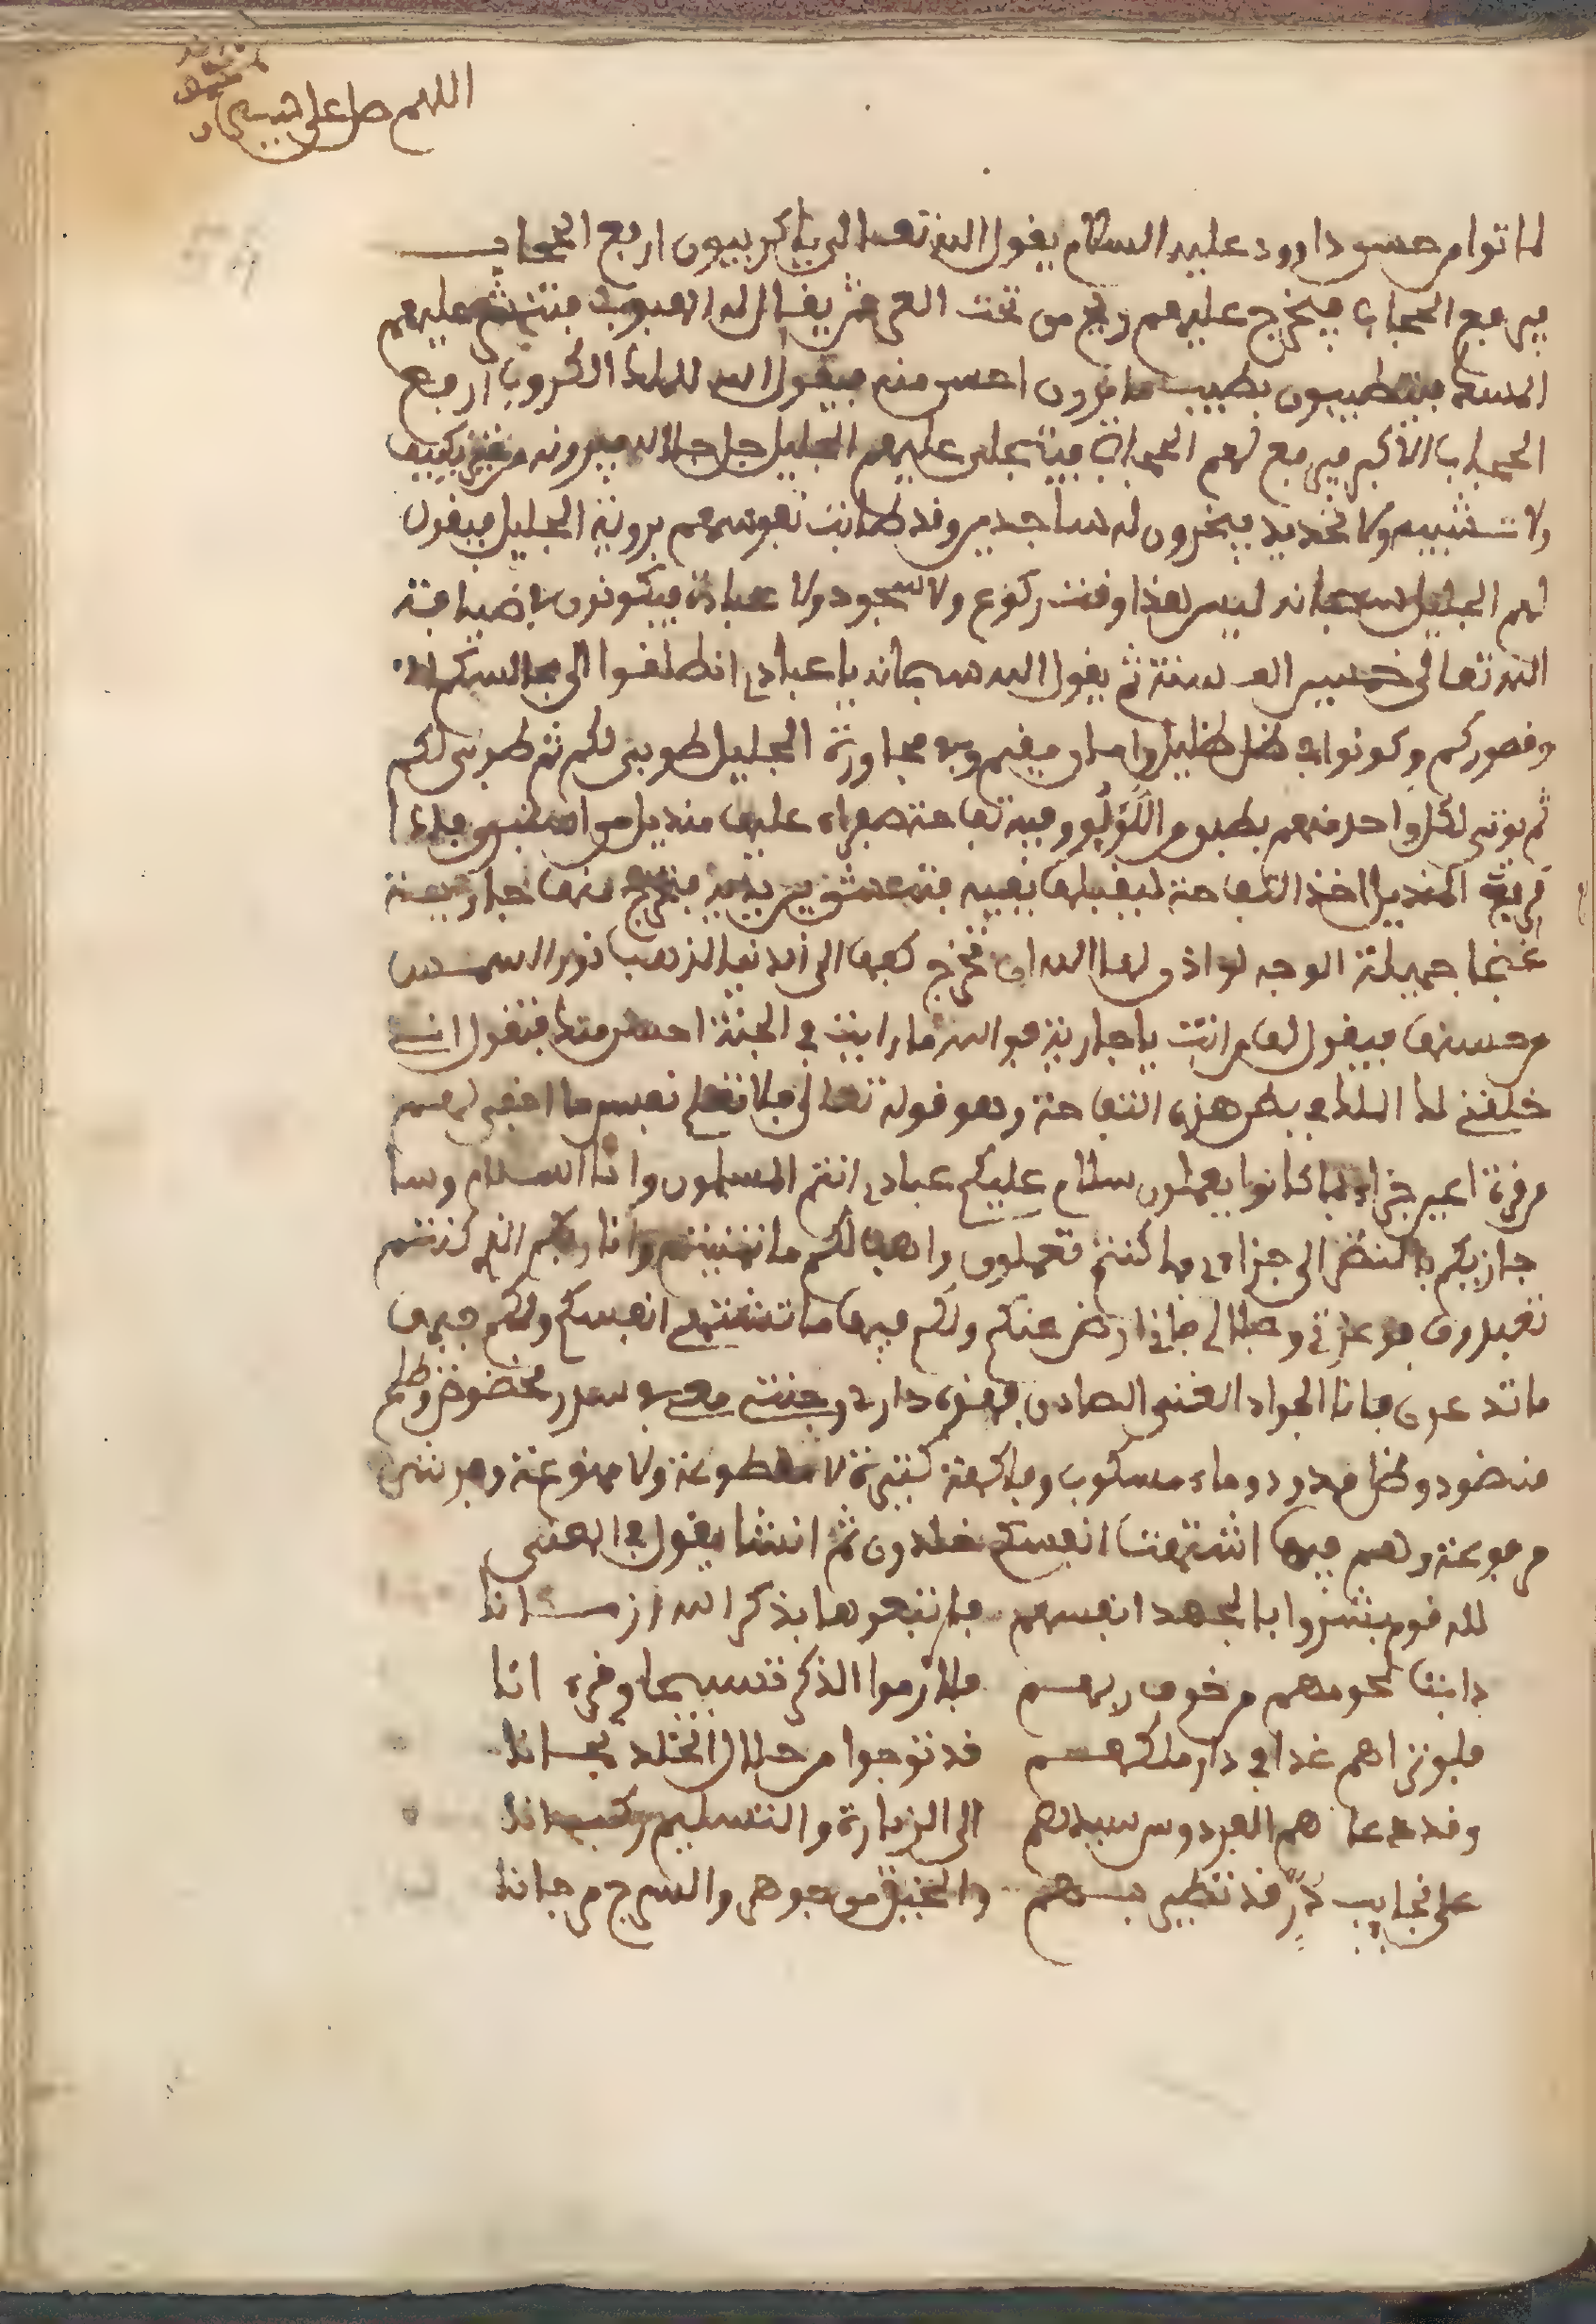 اللهم صل على حبيبي
لما توا من حسن داوود عليه السلام يقول الله تعالى يا كربيون ارفع الحجاب
فيرفع الحجاب فيخرج عليهم ريح من تحت العرش يقال له الهبوب فتنثر عليهم
المسك فيتطيبون بطيب ما يرون احسن منه فيقول الله للملك الكروب ارفع
الحجاب الاكبر فيرفع لهم الحجاب فيتجلى عليهم الجليل جل جلاله فيرونه من غير تكييف
ولا تشبيه ولا تحديد فيخرون له ساجدين وقد طابت نفوسهم برؤية الجليل فيقول
لهم الجليل سبحانه ليس هذا وقت ركوع ولا سجود ولا عبادة فيكونون في ضيافة
الله تعالى خمسين الف سنة ثم يقول الله سبحانه يا عبادي انطلقوا الى مجالسكم
وقصوركم وكونوا في ظل ظليل وامان مقيم وفي مجاورة الجليل طوبى لكم ثم طوبى لكم
ثم يوتى لكل واحد منهم بطبق من اللؤلؤ وفيه تفاحة صفراء عليها منديل من استبرق فاذا
رفع المنديل اخذ التفاحة ليقبلها بفيه فتنشق بين يديه فتخرج منها جارية
غنجا جميلة الوجه لو اذن لها الله ان تخرج كفها الى الدنيا لذهب نور الشمس
من حسنها فيقول لها من انت يا جارية فوالله ما رايت في الجنة احسن منك فتقول اني
خلقني لك الملك في بطن هذه التفاحة وهو قوله تعالى فلا تعلم نفس ما اخفي لهم
من قرة اعين جزاء بما كانوا يعملون سلام عليكم عبادي انتم المسلمون وانا السلام وسا
جازيكم بالنظر الى جزاء بما كنتم تعملون واهب لكم ما تمنيتم وانا ربكم الذي كنتم
تعبدون فوعزتي وجلالي فاني ارض عنكم ولكم فيها ما تشتهي انفسكم ولكم فيها
ما تدعون فانا الجواد الغني الصادق فهذه داري وجنتي معي في سدر مخضوض وطلح
منضود وظل ممدود وماء مسكوب وفاكهة كثيرة لا مقطوعة ولا ممنوعة وفرش
مرفوعة وهم فيما اشتهت انفسكم خلدون ثم انشا يقول في المعنى
لله قوم بشروا بالجهد انفسهم فاتبعوها بذكر الله ازمانا
ذابت لحومهم من خوف ربهم فلازموا الذكر تسبيحا وقرءانا
فلو تراهم غدا في دار ملكهم قد توجوا من حلال الخلد تيجانا
وقد دعاهم الفردوس سيدهم الى الزيارة والتسليم ركبانا
على نجايب در قد تطير بهم والخيل من جوهر والسرج مرجانا